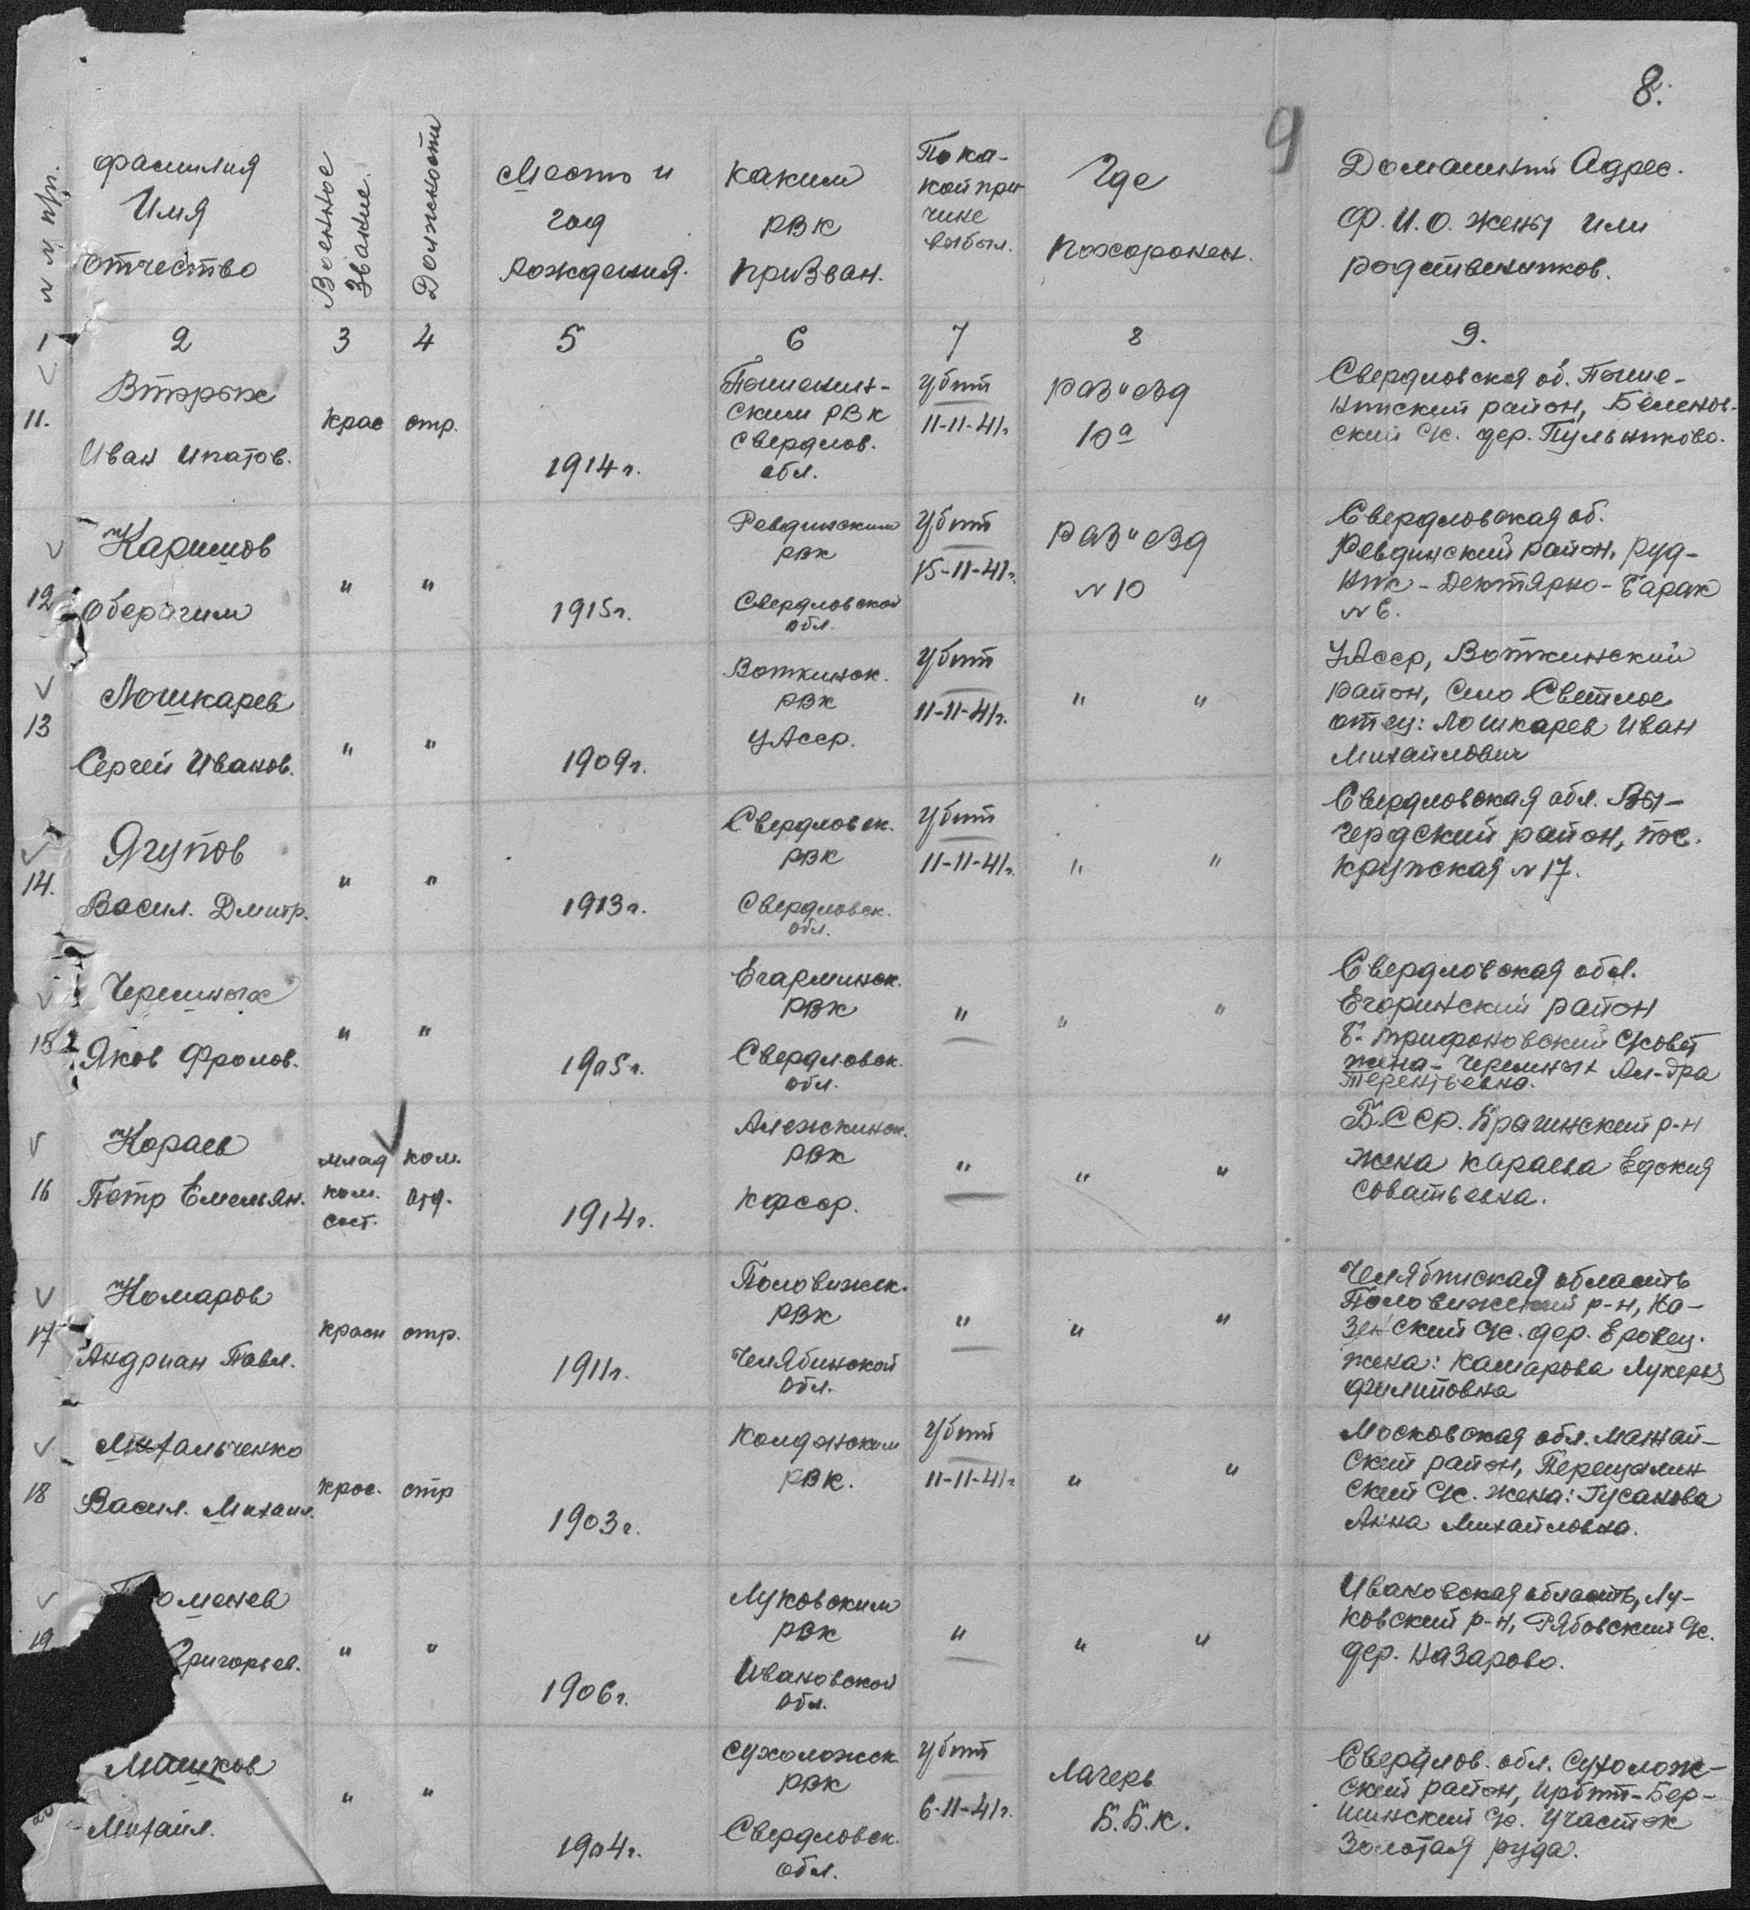 8.
9
N N п/п.
фамилия
Имя
отчество
Военное
Звание.
Должность
Место и
год
рождения.
Каким
РВК
призван.
По ка-
кой при-
чине
выбыл.
Где
похоронен.
Домашний Адрес.
Ф.И.О. жены или
родственников.
1 2 3 4 5 6 7 8 9.
11.
Вторых
Иван Ипатов.
Крас стр.
1914 г.
ским РВК
Свердлов.
обл.
Убит
11-11-41г.
раз"езд
10а
Свердловская об.
район,
ский с/с. дер. Пульниково.
12
Каримов
Оберагим
" "
1915г.
Ревдинским
РВК
Свердловской
обл.
Убит
15-11-41г.
раз"езд
N 10
Свердловская об.
Ревдинский район, руд-
ник - Дектярно - Барак
N 6.
13
Лошкарев
Сергей Иванов.
" "
1909г.
Воткинск.
РВК
УАсср.
Убит
11-11-41г.
" "
УАсср, Воткинский
район, село Светлое
отец: Лошкарев Иван
Михайлович
14.
Ягупов
Васил. Дмитр.
" "
1913г.
Свердловск.
РВК
Свердловск.
обл.
Убит
11-11-41г.
" "
Свердловская обл.
район,
№ 17.
15
Черемных
Яков Фролов.
" "
1905г.
Егарминск.
РВК
Свердловск.
обл.
"
" "
Свердловская обл.
Егоринский район
Б. Трифоновский с/совет
жена - Черемных Ал-дра
Терентьевна.
16
Караев
Петр Емельян.
млад
ком.
сост.
ком.
отд.
1914г.
РВК
Кфсср.
"
" "
Б.ССР. Брагинский р-н
жена Караева
17
Комаров
Андриан Павл.
красн стр.
1911г.
Половинск.
РВК
Челябинской
обл.
"
" "
Челябинская область
Половинский р-н, Ка-
зенский с/с. дер.
жена: Камарова Лукерья
Филиповна
18
Михальченко
Васил. Михаил.
крас. стр
1903г.
РВК.
Убит
11-11-41г
" "
Московская обл. Можай-
ский район,
ский с/с. жена: Гусакова
Анна Михайловна.
19
оменев
Григорьев.
" "
1906г.
Луковским
РВК
Ивановской
обл.
"
" "
Ивановская область, Лу-
ковский р-н, Рябовский с/с.
дер. Назарово.
Машков
Михаил.
" "
1904г.
Сухоложск
РВК
Свердловск.
обл.
Убит
6-11-41г.
Лагерь
Б.Б.К.
Свердлов. обл. Сухолож-
ский район,
с/с. Участок
Золотая руда.